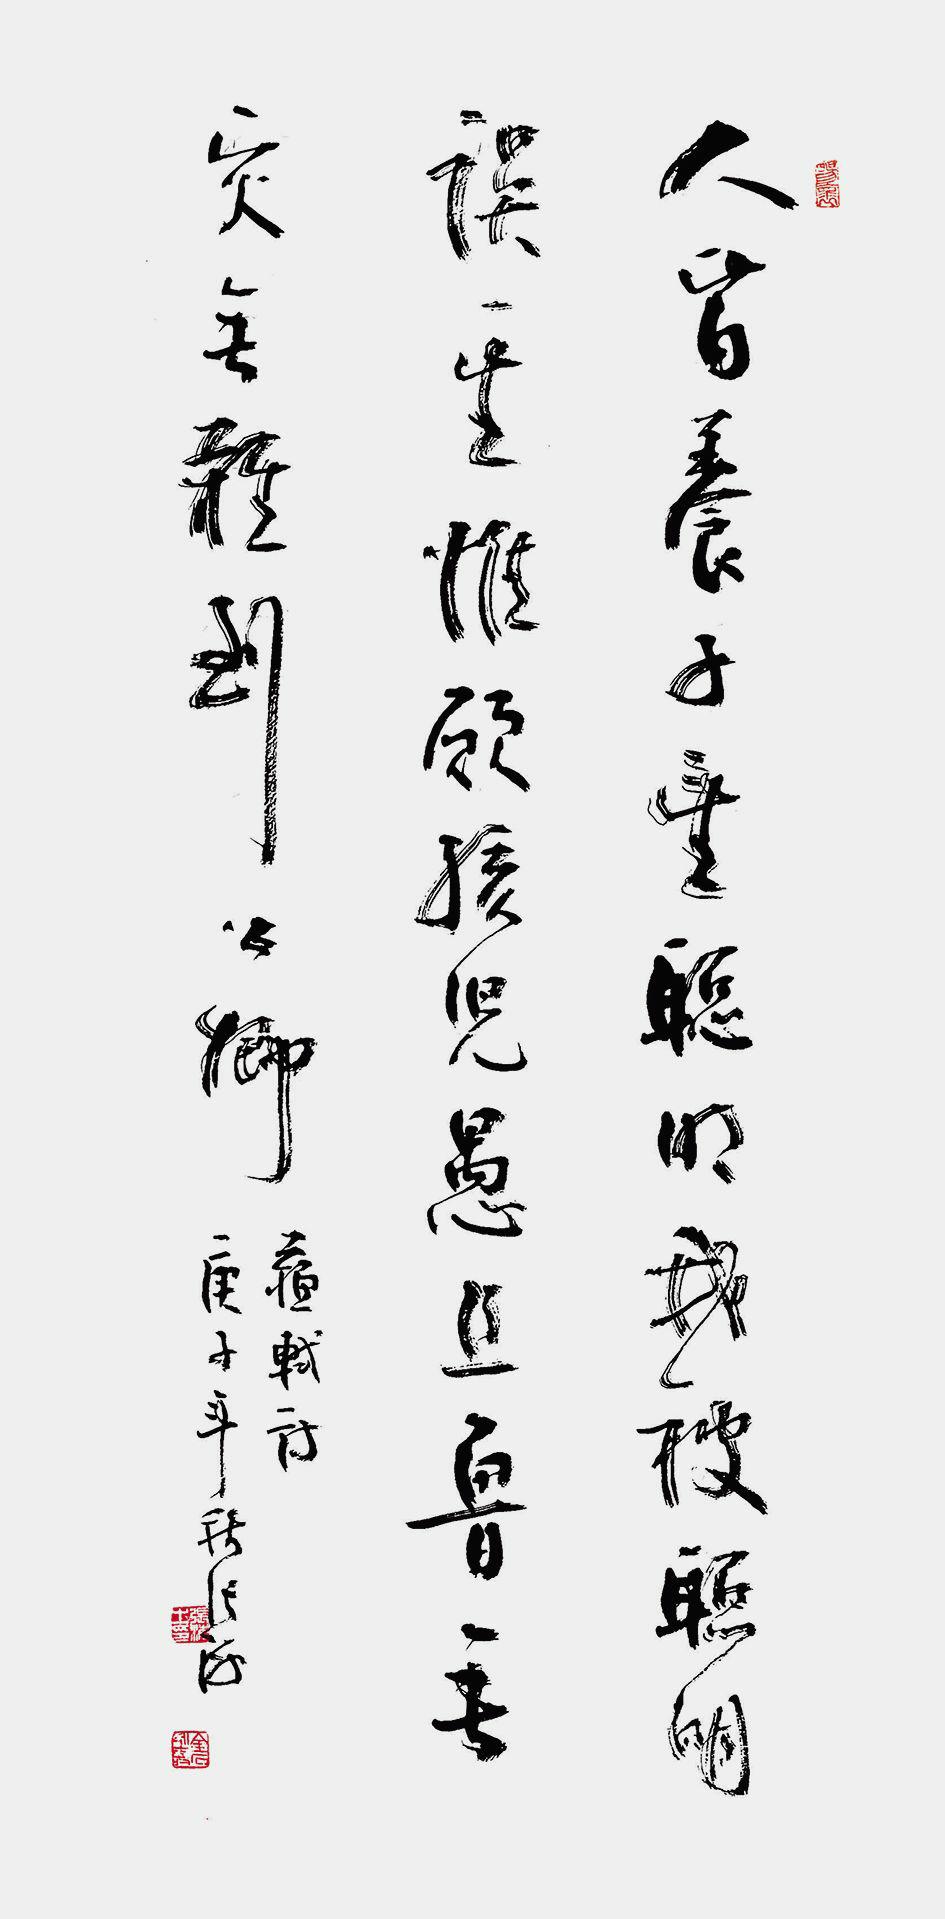 人皆養子望聰明我被聰明
誤一生惟願孩兒愚且魯無
災無難到公卿
蘇軾詩
庚子年